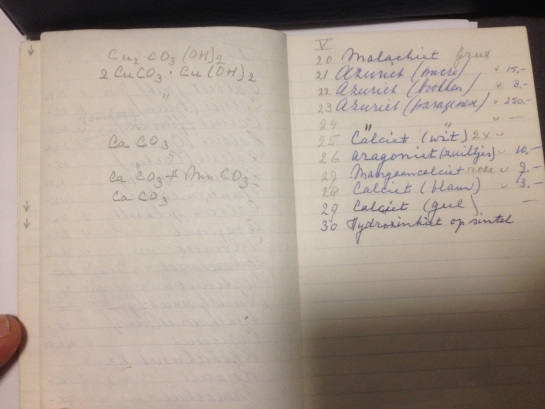 Cu2 CO3 (OH)2
2 CuCO3 · Cu(OH)2
"
Ca CO3
Ca CO3 + Mn CO3
Ca CO3
V
20 Malachiet
21 Azuriet (micro) " 15,-
22 Azuriet " 8.-
23 Azuriet " 250,-
24 " " " -
25 Calciet (wit) 2x
26 aragoniet 10,-
27 Mangaancalciet 9.-
28 Calciet (blauw) 3,-
29 Calciet (geel -
30 Hydrozinkiet op sintel